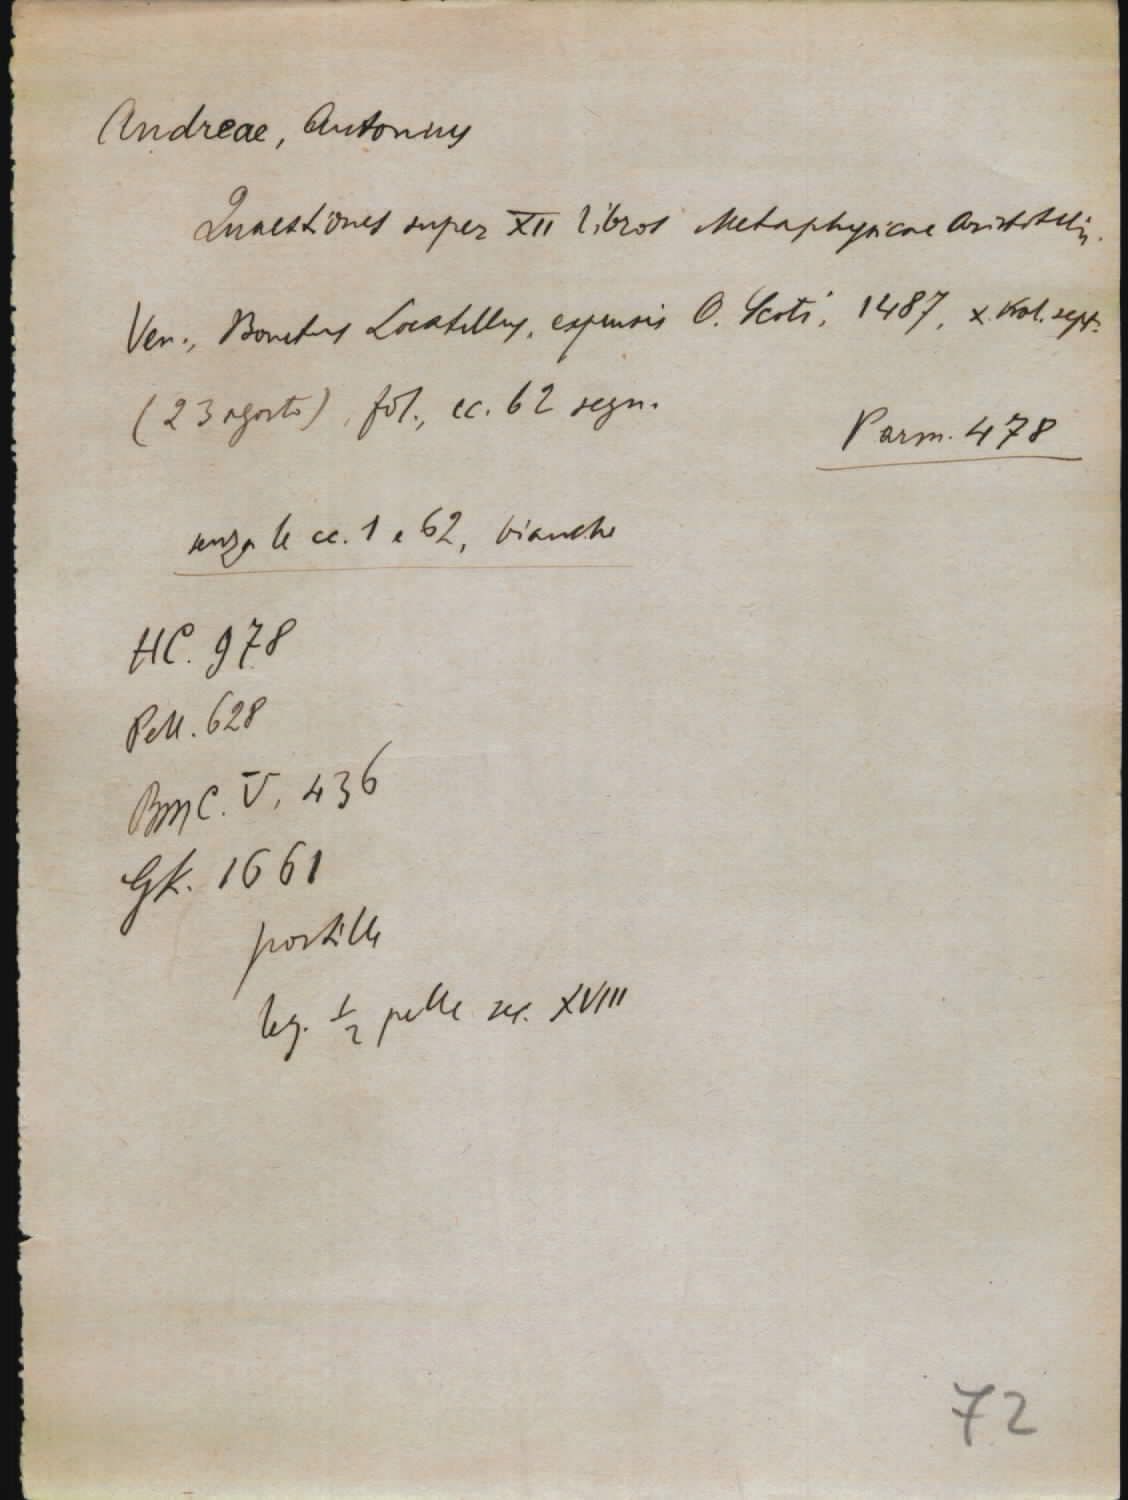 Andreae, Antonius
Quaestiones super XII libros Metaphysicae Aristotelis.
Ven., Bonetus Locatellus, expensis O. Scoti, 1487, x. Kal. sept.
(23 agosto), fol., cc. 62 segn.
Parm. 478
senza le cc. 1 e 62, bianche
HC. 978
Pell. 628
BMC. V, 436
GK. 1661
postille
leg. ½ pelle sec. XVIII
72